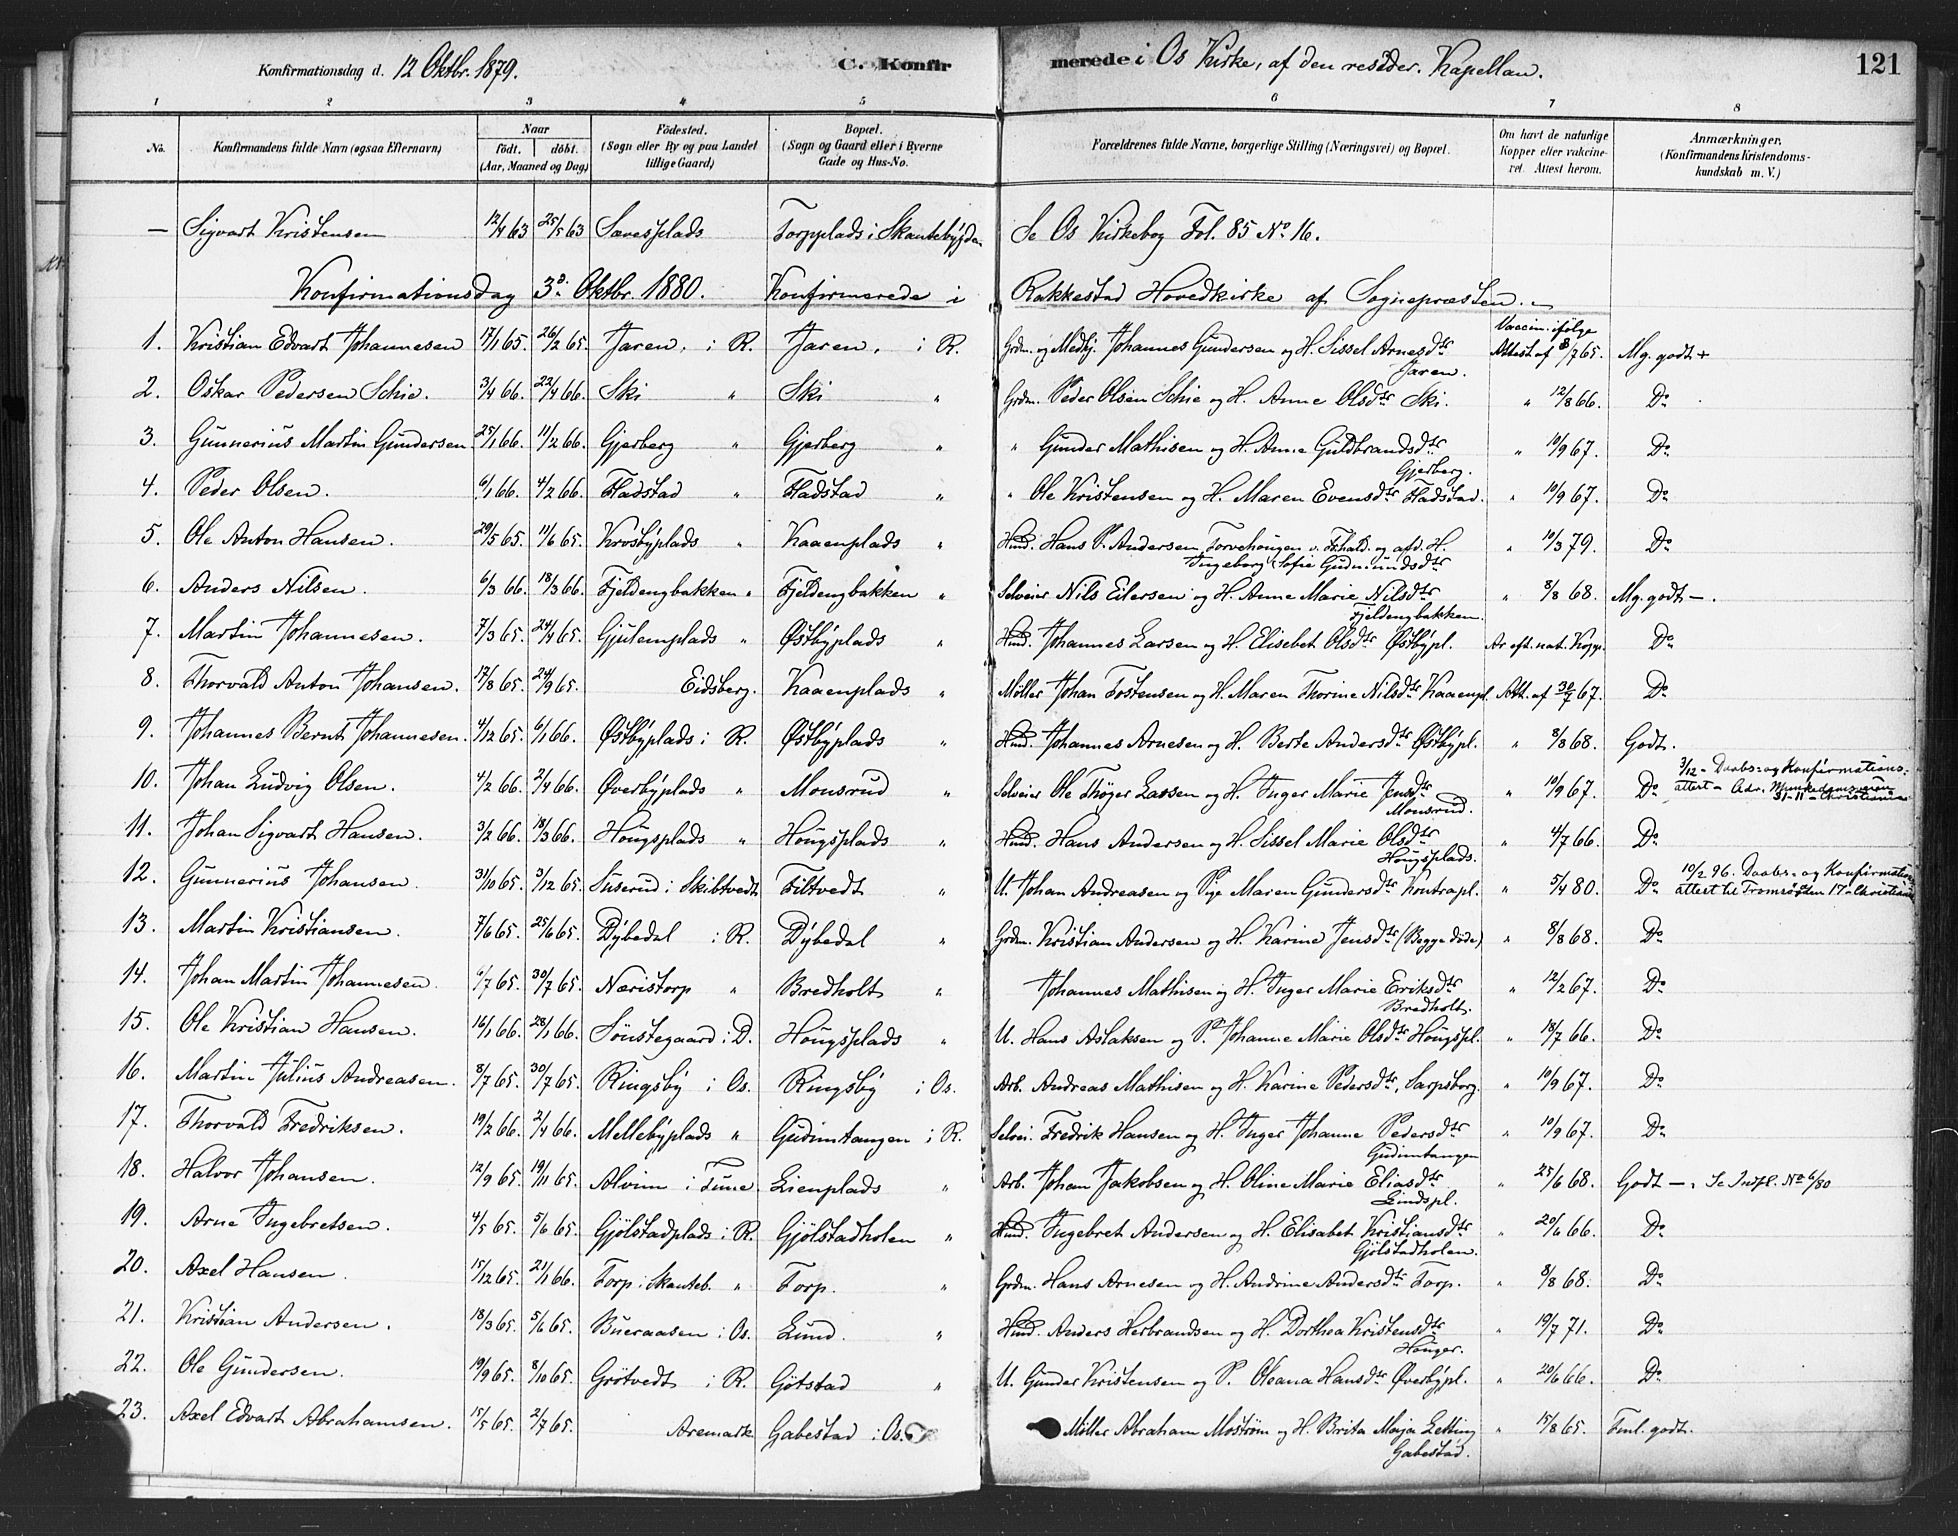 Konfirmationsdag d. 12 Oktbr. 1879. C. Konfirmerede i Os Kirke, af den resider. Kapellan. 121
1 2 3 4 5 6 7 8
No. Konfirmandens fulde Navn (ogsaa Efternavn) Naar født. døbt. (Aar, Maaned og Dag) Fødested. (Sogn eller By og paa Landet tillige Gaard) Bopæl. (Sogn og Gaard eller i Byerne Gade og Hus-No. Forældrenes fulde Navne, borgerlige Stilling (Næringsvei) og Bopæl. Om havt de naturlige Kopper eller vakcineret. Attest herom. Anmærkninger. (Konfirmandens Kristendomskundskab m. V.)
— Sigvart Kristensen 12/4 63 25/5 63 Sævesplads Torpplads i Skantebygden Se Os Kirkebog Fol. 85 No 16.
Konfirmationsdag 3die Oktbr. 1880. Konfirmerede i Rakkestad Hovedkirke af Sognepræsten.
1. Kristian Edvart Johannesen 17/1 65. 26/2 65. Jaren, i R. Jaren, i R. Grdm. og Medhj. Johannes Gundersen og H. Sissel Arnesdtr Jaren. Vaccin. ifølge Attest af 8/7 65. Mg. godt +
2. Oskar Pedersen Schie. 3/4 66. 22/4 66. Ski " Ski " Grdm. Peder Olsen Schie og H. Anne Olsdtr Ski. " 12/8 66. Do
3. Gunnerius Martin Gundersen 25/1 66. 11/2 66. Gjerberg " Gjerberg " " Gunder Mathisen og H. Anne Guldbrandsdtr Gjerberg. " 10/9 67. Do
4. Peder Olsen. 6/1 66. 4/2 66. Fladstad " Fladstad " " Ole Kristensen og H. Maren Evensdtr Fladstad. " 10/9 67. Do
5. Ole Anton Hansen. 29/5 65. 11/6 65. Krosbyplads " Kaaenplads " Husd. Hans P. Andersen Torvehougen v. Frhald. og afd. H. Ingeborg Sofie Gudmundsdtr " 10/3 79. Do
6. Anders Nilsen. 6/3 66. 18/3 66. Fjeldengbakken " Fjeldengbakken " Selveier Nils Eilersen og H. Anne Marie Nilsdtr Fjeldengbakken. " 8/8 68. Mg. godt —.
7. Martin Johannesen. 7/3 65. 24/4 65. Gjulemplads " Østbyplads " Husd. Johannes Larsen og H. Elisebet Olsdtr Østbypl. Ar eft. nat. Kopp. Do
8. Thorvald Anton Johansen. 17/8 65. 24/9 65. Eidsberg. Kaaenplads " Møller Johan Tostensen og H. Maren Thorine Nilsdtr Kaaenpl. Att. af 30/7 67. Do
9. Johannes Bernt Johannesen. 4/12 65. 6/1 66. Østbyplads i R. Østbyplads " Husd. Johannes Arnesen og H. Berte Andersdtr Østbypl. " 8/8 68. Godt.
10. Johan Ludvig Olsen. 4/2 66. 2/4 66. Øverbyplads " Monsrud " Selveier Ole Thøger Larsen og H. Inger Marie Jensdtr Monsrud. " 10/9 67. Do 3/12 - Daabs- og Konfirmationsattest - Adr. Munkedamsveien 31-II - Christiania
11. Johan Sigvart Hansen. 3/2 66. 18/3 66. Hougsplads " Hougsplads " Husd. Hans Andersen og H. Sissel Marie Olsdtr Hougsplads. " 4/7 66. Do
12. Gunnerius Johansen. 31/10 65. 3/12 65. Suserud i Skibtvedt Filtvedt " U. Johan Andreasen og Pige Maren Gundersdtr Kontrapl. " 5/4 80. Do 10/2 96. Daabs- og Konfirmationattest til Tromsøgten 17 - Christiania
13. Martin Kristiansen. 7/6 65. 25/6 65. Dybedal i R. Dybedal " Grdm. Kristian Andersen og H. Karine Jensdtr (Begge døde) " 8/8 68. Do
14. Johan Martin Johannesen. 6/7 65. 30/7 65. Næristorp " Bredholt " Johannes Mathisen og H. Inger Marie Eriksdtr Bredholt. " 12/2 67. Do
15. Ole Kristian Hansen. 16/1 66. 28/1 66. Sønstegaard i D. Hougsplads " U. Hans Aslaksen og P. Johanne Marie Olsdtr Hougspl. " 18/7 66. Do
16. Martin Julius Andreasen. 8/7 65. 30/7 65. Ringsby i Os. Ringsby i Os. Arb. Andreas Mathisen og H. Karine Pedersdtr, Sarpsborg. " 10/9 67. Do
17. Thorvald Fredriksen. 19/2 66. 2/4 66. Mellebyplads " Gudimtangen i R. Selvei. Fredrik Hansen og H. Inger Johanne Pedersdtr Gudimtangen " 10/9 67. Do
18. Halvor Johansen. 12/9 65. 19/11 65. Alvim i Tune Lienplads " Arb. Johan Jakobsen og H. Oline Marie Eliasdtr Lindspl. " 25/6 68. Godt —. Se Indfl. No 6/80
19. Arne Ingebretsen. 4/5 65. 5/6 65. Gjølstadplads i R. Gjölstadholen " Husd. Ingebret Andersen og H. Elisabet Kristiansdtr Gjølstadholen. " 20/6 66. Do
20. Axel Hansen. 15/12 65. 21/1 66. Torp i Skanteb. " Torp. " Grdm. Hans Arnesen og H. Andrine Andersdtr Torp. " 8/8 68. Do
21. Kristian Andersen. 18/3 65. 5/6 65. Bueraasen i Os. Lund. " Husd. Anders Herbrandsen og H. Dorthea Kristensdtr Houger. " 19/7 71. Do
22. Ole Gundersen. 19/9 65. 8/10 65. Grøtvedt i R. Gøtstad " U. Gunder Kristensen og P. Oleana Hansdtr Øverbypl. " 20/6 66. Do
23. Axel Edvart Abrahamsen. 15/5 65. 2/7 65. Aremark Gabestad i Os. Møller Abraham Moström og H. Brita Maja Zetting Gabestad. " 15/8 65. Tml. godt.